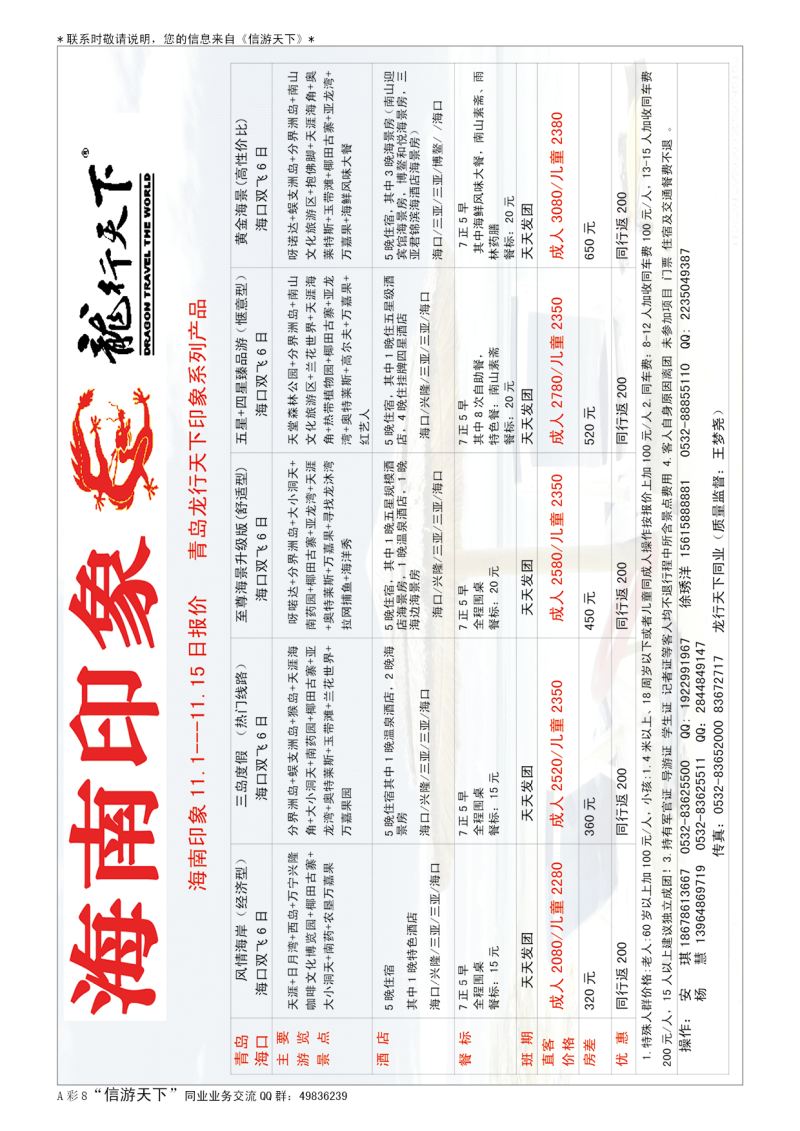 *联系时敬请说明，您的信息来自《信游天下》*
海南印象
龙行天下®
DRAGON TRAVEL THE WORLD
海南印象 11.1---11.15日报价　青岛龙行天下印象系列产品
青岛
海口
风情海岸（经济型）
海口双飞6日
三岛度假 （热门线路）
海口双飞6日
至尊海景升级版(舒适型)
海口双飞6日
五星+四星臻品游（惬意型）
海口双飞6日
黄金海景(高性价比)
海口双飞6日
主 要
游 览
景 点
天涯+日月湾+西岛+万宁兴隆
咖啡文化博览园+椰田古寨+
大小洞天+南药+农垦万嘉果
分界洲岛+蜈支洲岛+猴岛+天涯海
角+大小洞天+南药园+椰田古寨+亚
龙湾+奥特莱斯+玉带滩+兰花世界+
万嘉果园
呀喏达+分界洲岛+大小洞天+
南药园+椰田古寨+亚龙湾+天涯
+奥特莱斯+万嘉果+寻找龙沐湾
拉网捕鱼+海洋秀
天堂森林公园+分界洲岛+南山
文化旅游区+兰花世界+天涯海
角+热带植物园+椰田古寨+亚龙
湾+奥特莱斯+高尔夫+万嘉果+
红艺人
呀诺达+蜈支洲岛+分界洲岛+南山
文化旅游区+抱佛脚+天涯海角+奥
莱特斯+玉带滩+椰田古寨+亚龙湾+
万嘉果+海鲜风味大餐
酒 店
5晚住宿
其中1晚特色酒店
海口/兴隆/三亚/三亚/海口
5晚住宿其中1晚温泉酒店，2晚海
景房
海口/兴隆/三亚/三亚/海口
5晚住宿，其中1晚五星规模酒
店海景房，1晚温泉酒店，1晚
海边海景房
海口/兴隆/三亚/三亚/海口
5晚住宿，其中1晚住五星级酒
店，4晚住挂牌四星酒店
海口/兴隆/三亚/三亚/海口
5晚住宿，其中3晚海景房（南山迎
宾馆海景房，博鳌和悦海景房，三
亚君锦滨海酒店海景房）
海口/三亚/三亚/博鳌/ /海口
餐 标
7正5早
全程围桌
餐标：15元
7正5早
全程围桌
餐标：15元
7正5早
全程围桌
餐标：20元
7正5早
其中8次自助餐，
特色餐：南山素斋
餐标：20元
7正5早
其中海鲜风味大餐，南山素斋、雨
林药膳
餐标：20元
班 期
天天发团
天天发团
天天发团
天天发团
天天发团
直客
价格
成人 2080/儿童 2280
成人 2520/儿童 2350
成人 2580/儿童 2350
成人 2780/儿童 2350
成人 3080/儿童 2380
房差
320元
360元
450元
520元
650元
优 惠
同行返200
同行返200
同行返200
同行返200
同行返200
1.特殊人群价格:老人:60岁以上加100元/人、小孩:1.4米以上、18周岁以下或者儿童同成人操作按报价上加100元/人 2.同车费：8-12人加收同车费100元/人、13-15人加收同车费
200元/人、15人以上建议独立成团！3.持有军官证 导游证 学生证 记者证等客人均不退行程中所含景点费用 4.客人自身原因离团 未参加项目 门票 住宿及交通餐费不退 。
操作： 安　琪 18678613667 0532-83625500 QQ：1922991967 徐琇洋 15615888881 0532-88855110 QQ：2235049387
杨　慧 13964869719 0532-83625511 QQ：2844849147
传真：0532-83652000 83672717 龙行天下同业（质量监督：王梦尧）
A彩8 “信游天下” 同业业务交流QQ群：49836239